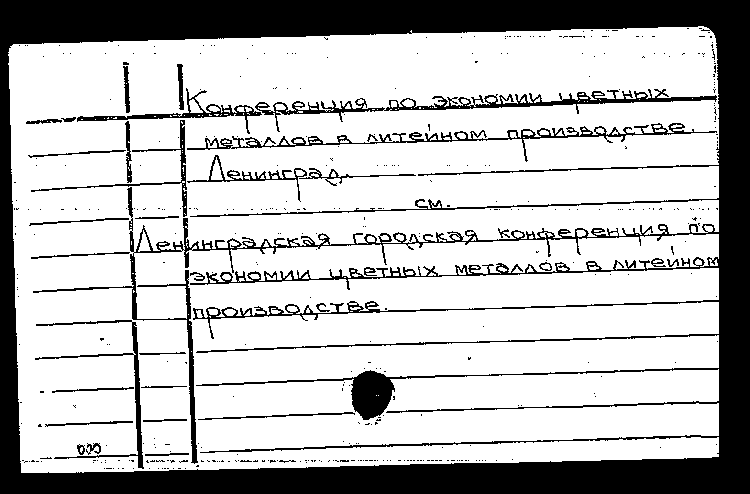 Конференция по экономии цветных
металлов в литейном производстве.
Ленинград.
см.
Ленинградская городская конференция по
экономии цветных металлов в литейном
производстве.